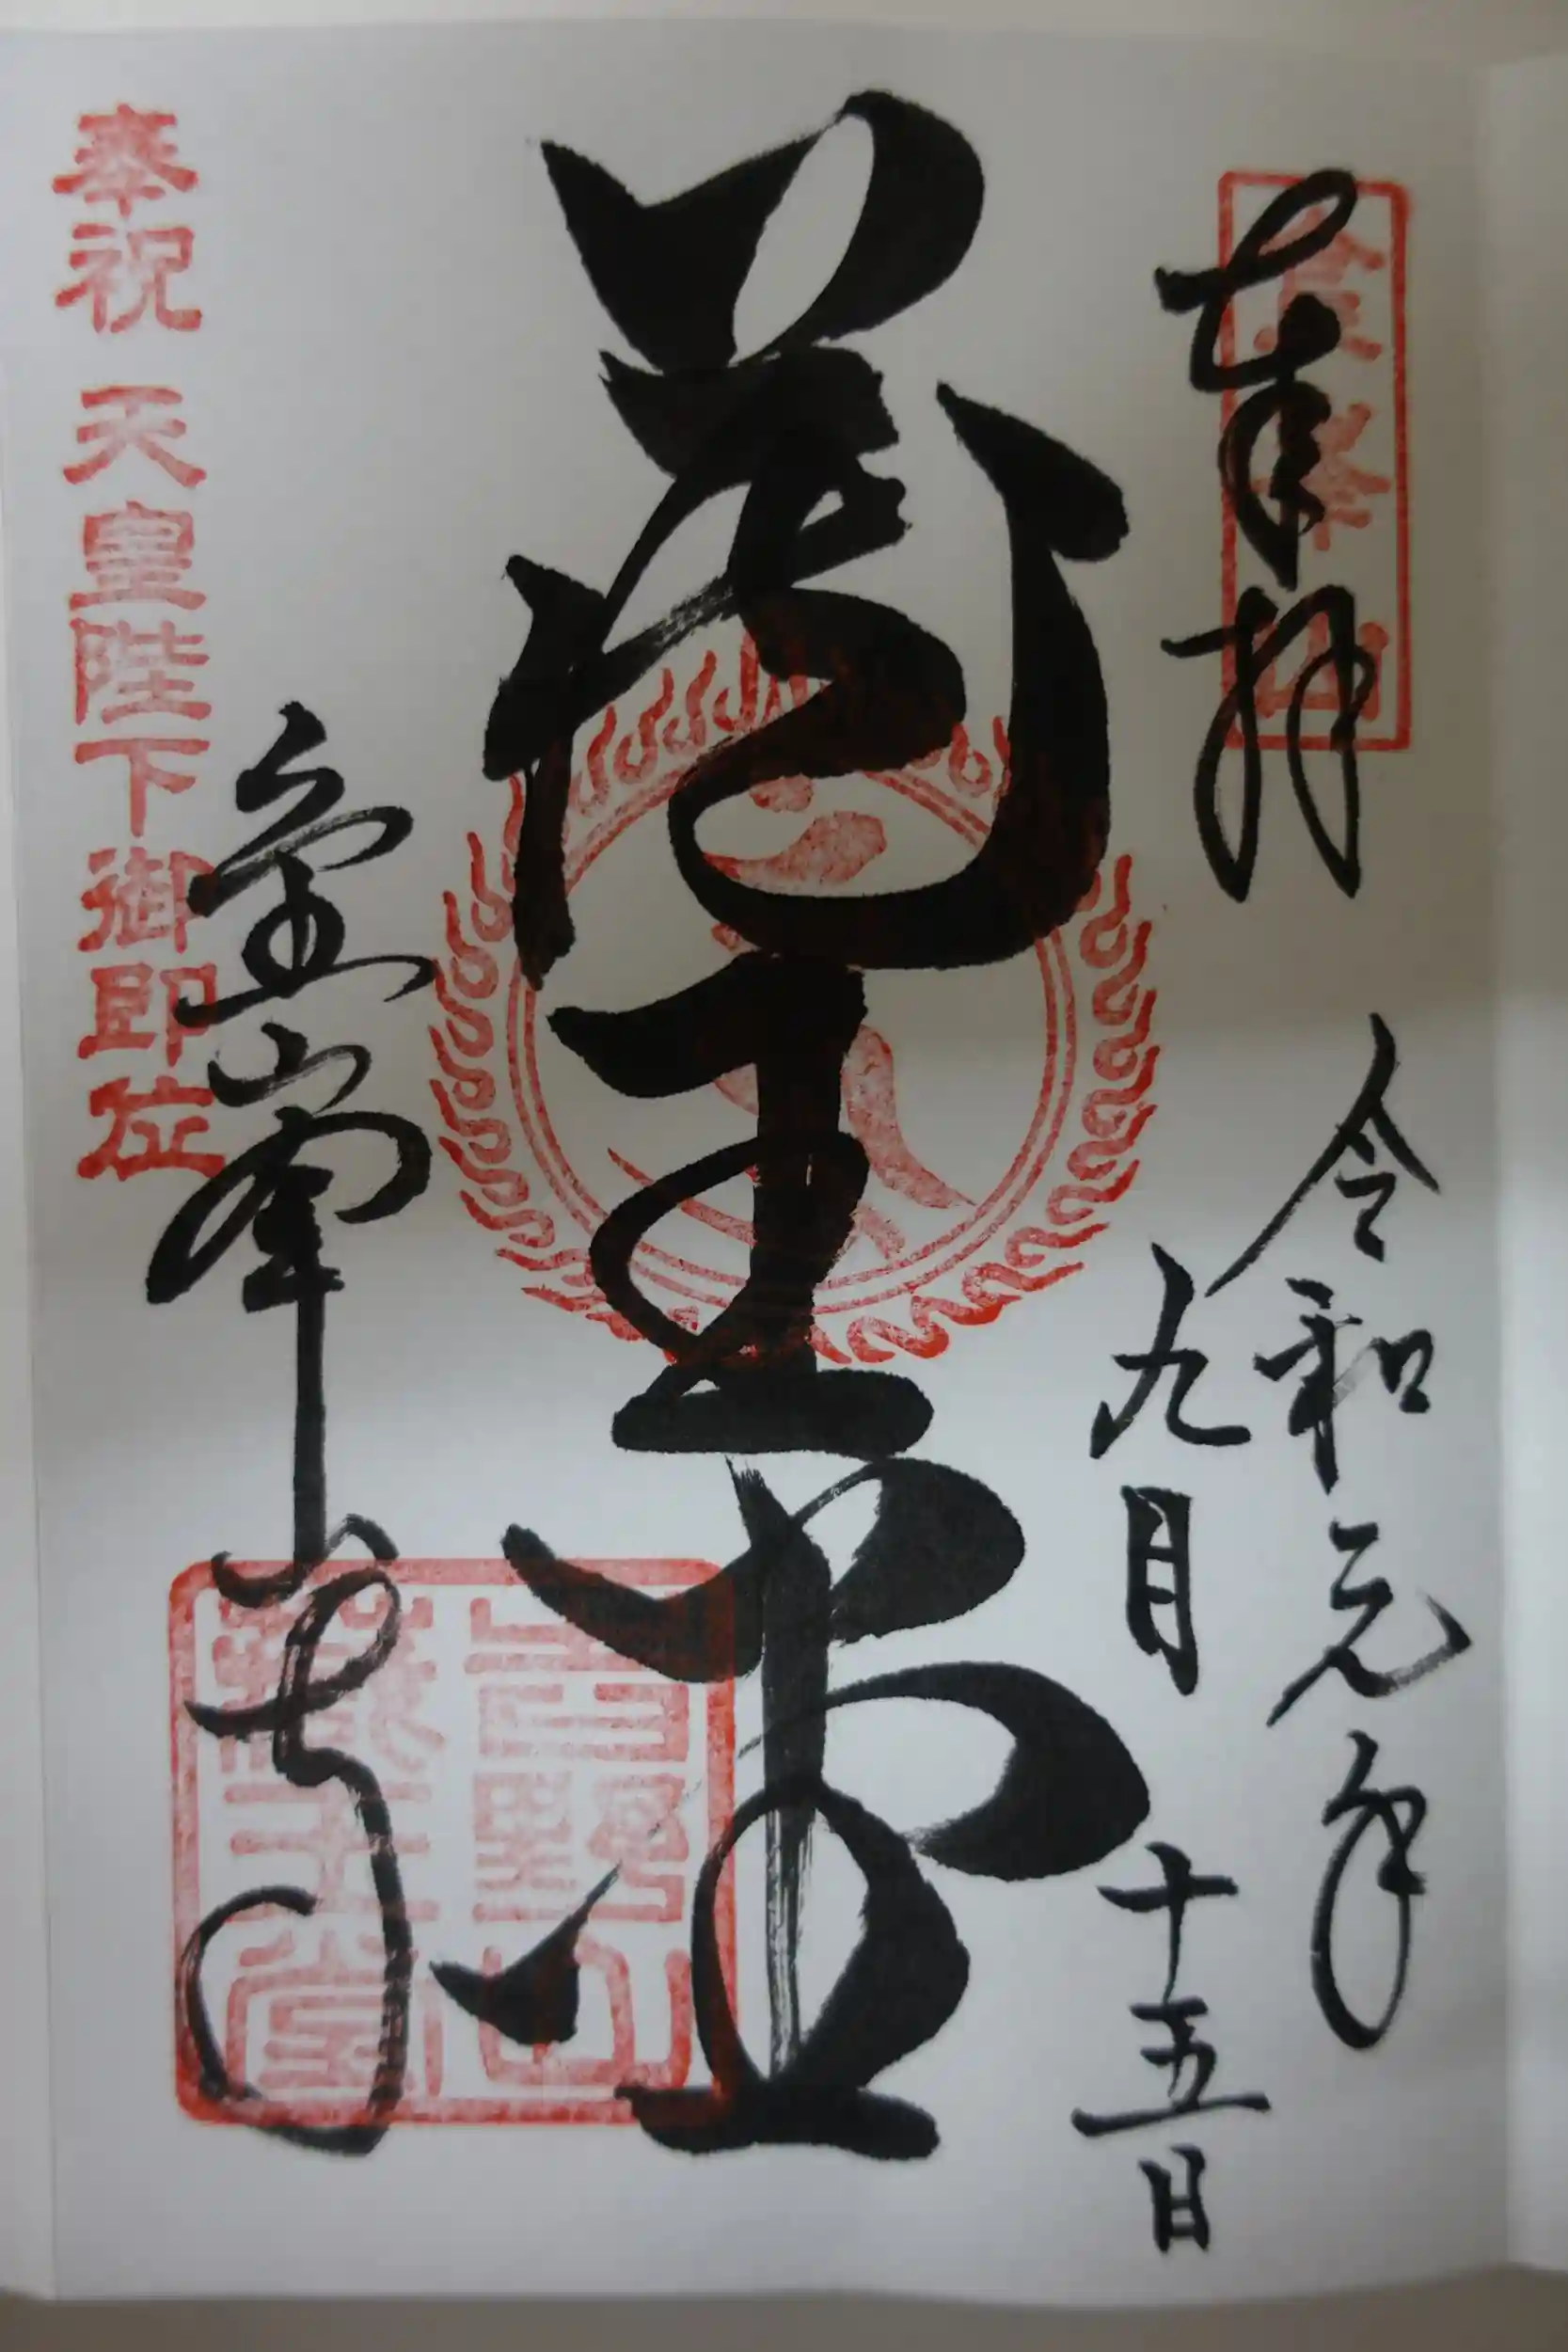 奉拝
金峯山
令和元年
九月十五日
蔵王堂
吉野山
蔵王堂
金峯山寺
奉祝 天皇陛下御即位